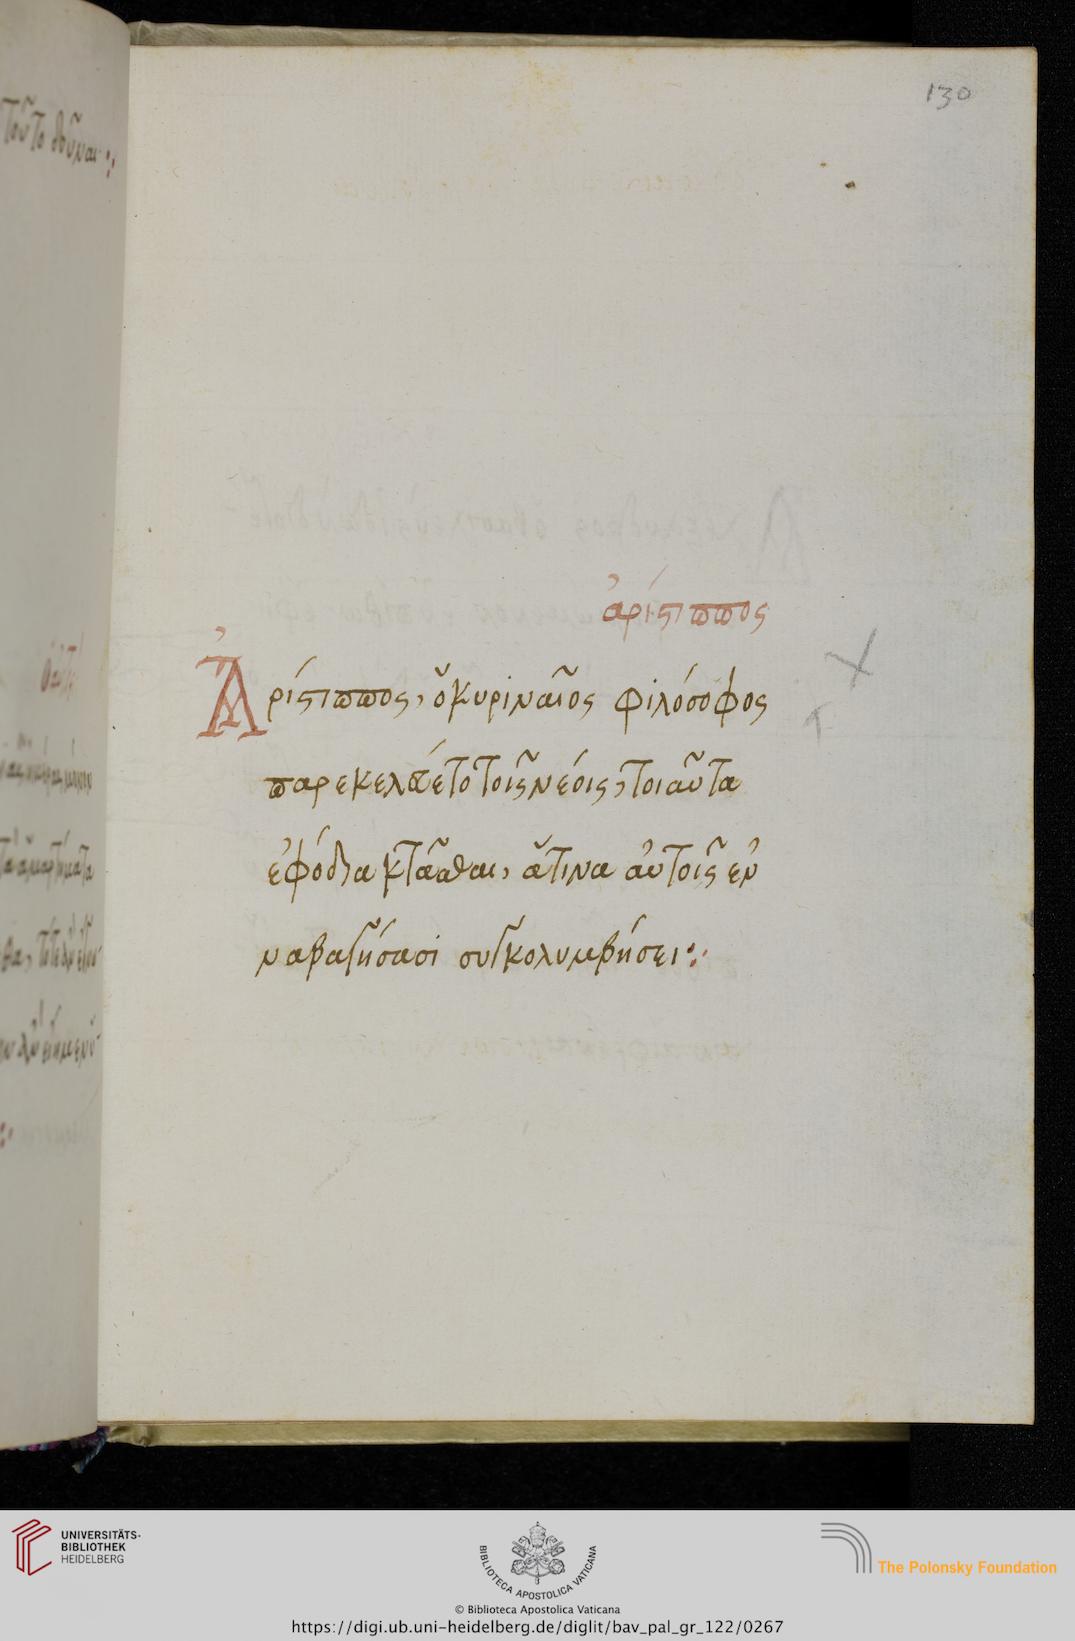 130
τοῦτο δοῦναι
ἀρίστιππος
Ἀρίστιππος, ὁ κυριναῖος φιλόσοφος
παρεκελεύετο τοῖς νέοις, τοιαῦτα
ἐφόδια κτᾶσθαι, ἅτινα αὐτοῖς ἐν
ναβαγήσασι συγκολυμβήσει
UNIVERSITÄTS-
BIBLIOTHEK
HEIDELBERG
BIBLIOTECA APOSTOLICA VATICANA
The Polonsky Foundation
© Biblioteca Apostolica Vaticana
https://digi.ub.uni-heidelberg.de/diglit/bav_pal_gr_122/0267